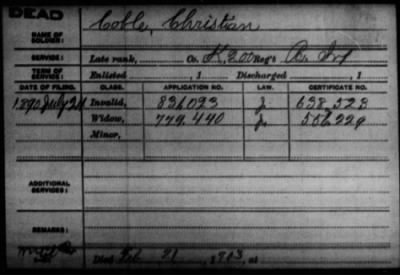 DEAD
NAME OF SOLDIER: Coble, Christian
SERVICE: Late rank, Co. K, 200 Reg't Pa. Inf
TERM OF SERVICE: Enlisted , 1 Discharged , 1
DATE OF FILING. CLASS. APPLICATION NO. LAW. CERTIFICATE NO.
1890 July 21 Invalid, 831.093 J 638.528
Widow, 779.440 J. 556.229
Minor,
ADDITIONAL SERVICES:
REMARKS:
Died Feb 21, 1903, at